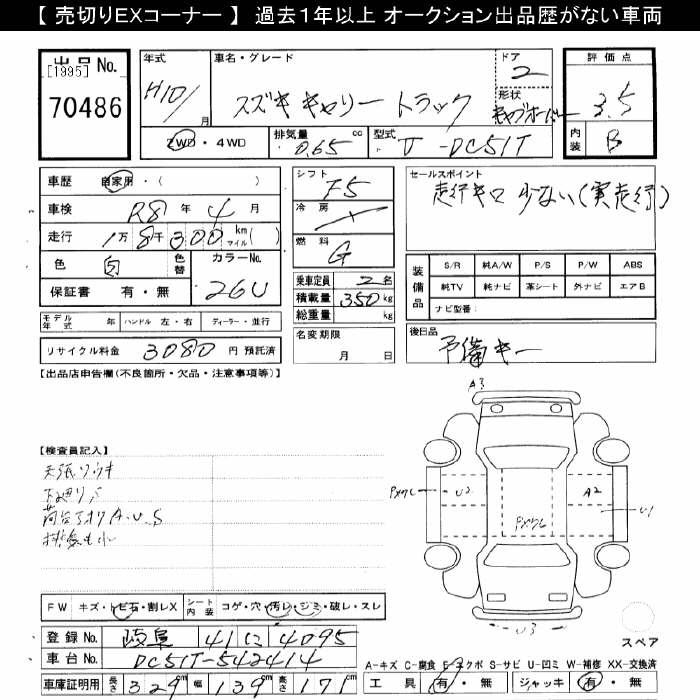 【 売切りEXコーナー 】 過去１年以上 オークション出品歴がない車両
出品No.
[1995]
70486
年式
H10/ 月
車名・グレード
スズキ キャリー トラック
ドア
2
形状
キャブオーバー
評価点
3.5
内装
B
2WD・4WD
排気量 0.65 cc
型式 V-DC51T
車歴 自家用・( )
車検 R8 年 4 月
走行 1万 8千 300 km マイル( )
色 白 色替
カラーNo. 26U
保証書 有・無
モデル年式 年 ハンドル 左・右 ディーラー・並行
リサイクル料金 3080 円 預託済
シフト F5
冷房
燃料 G
乗車定員 2名
積載量 350 kg
総重量 kg
名変期限
月 日
セールスポイント
走行キロ 少ない(実走行)
装備品
S/R 純A/W P/S P/W ABS
純TV 純ナビ 革シート 外ナビ エアB
ナビ型番：
後日品
予備キー
【出品店申告欄(不良箇所・欠品・注意事項等)】
【検査員記入】
天張ウキ
下廻りS
荷台アオリ A.U.S
A3
U2
A2
U1
U3
FW キズ・トビ石・割レX
シート内装 コゲ・穴・汚レ・シミ・破レ・スレ
登録No. 岐阜 41 に 4095
車台No. DC51T-542414
車庫証明用 長さ 329 幅 139 高さ 171 cm
スペア
A-キズ C-腐食 E-エクボ S-サビ U-凹ミ W-補修 XX-交換済
工具 有・無 ジャッキ 有・無